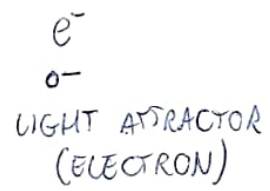 e⁻
o−
LIGHT ATTRACTOR
(ELECTRON)